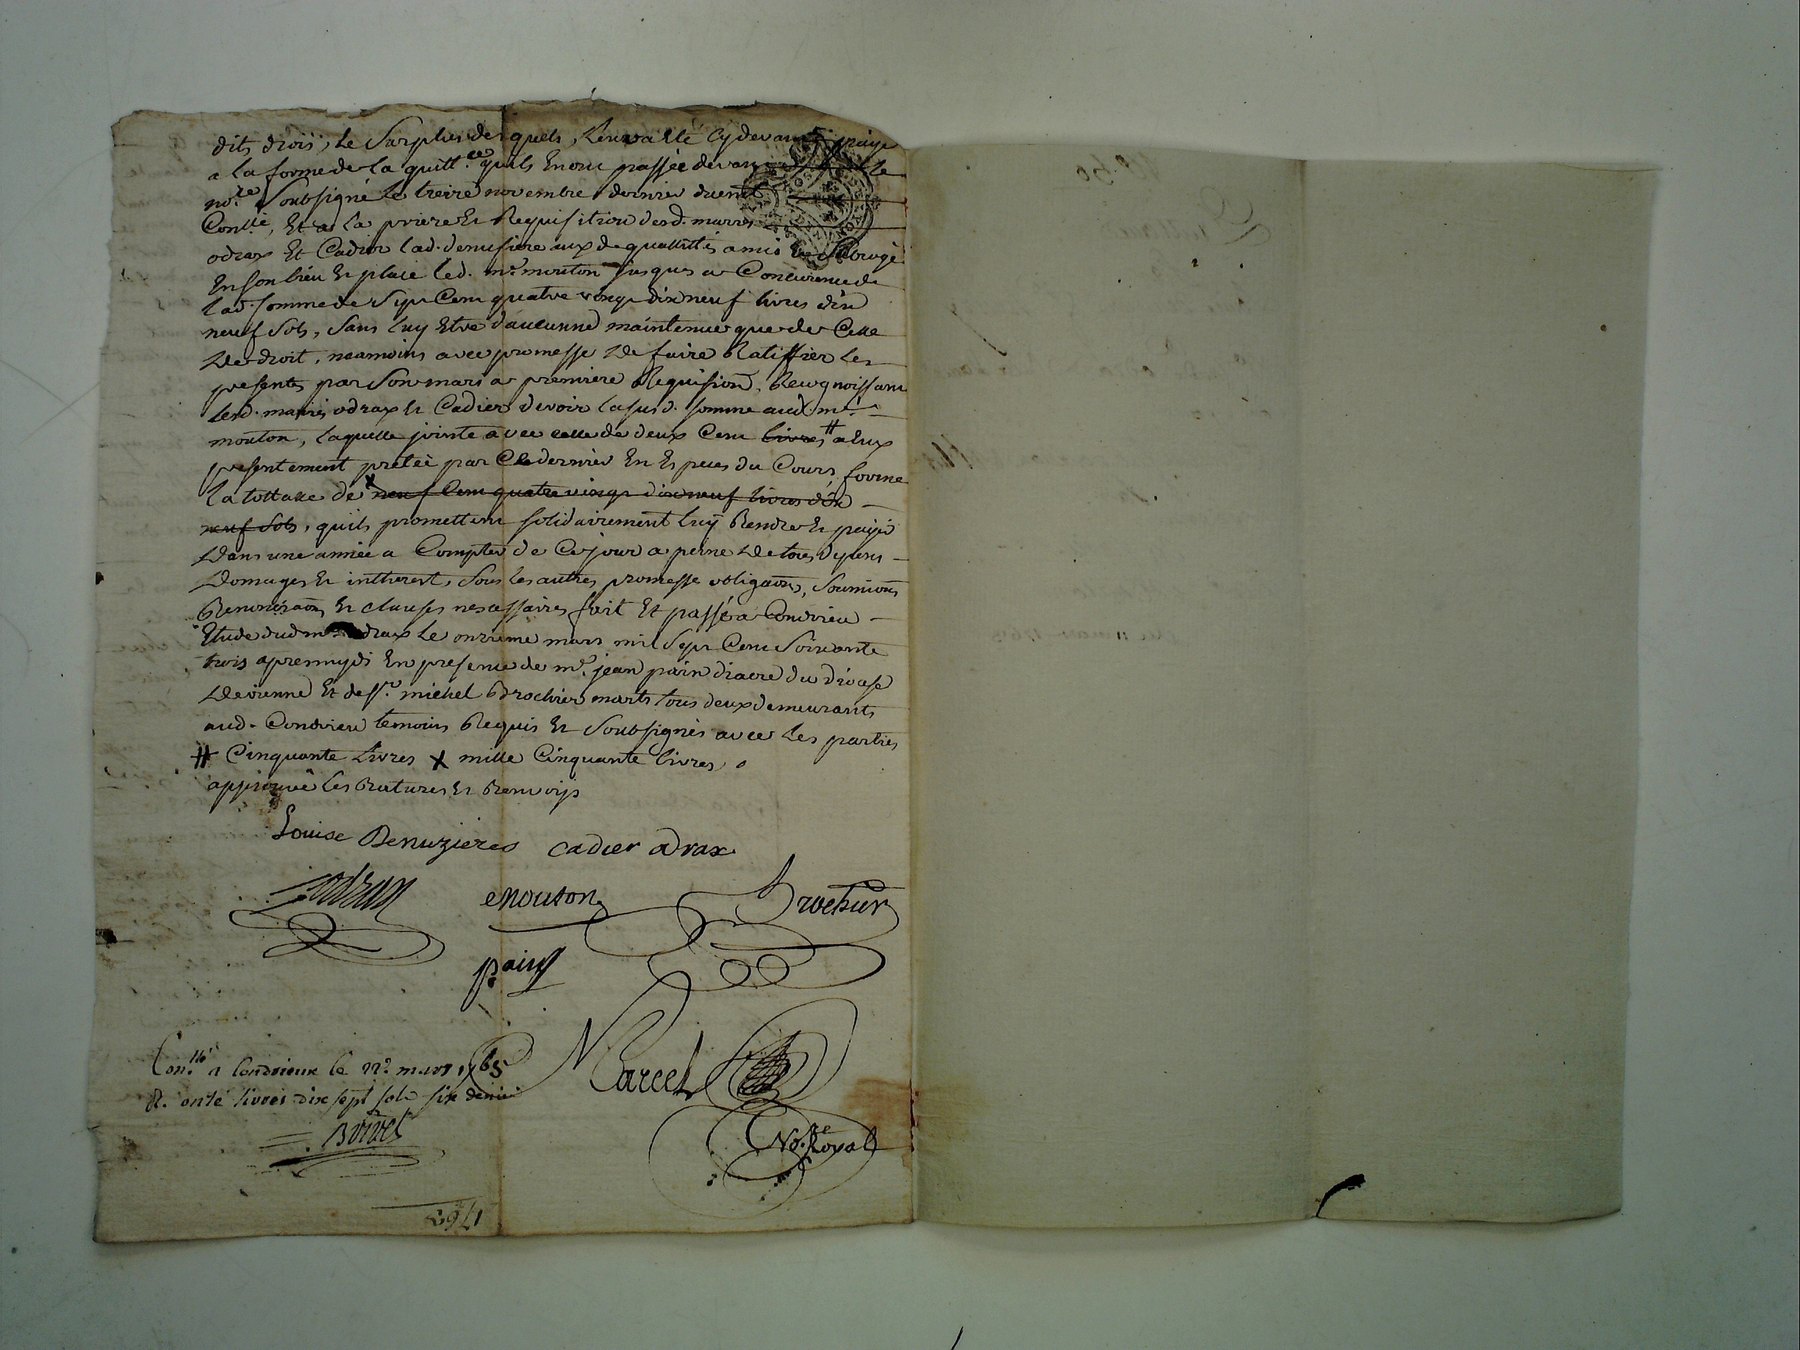 dits drois, le Surplus desquels, leur a été cy devant payé
a la forme de la quitt.ce quils En ont passée devant le
no.re Soubsigné le treize novembre dernier duemt
Conllé, Et a la priere Et Requisition desd. mariés
odrax Et Cadier lad. denuziere aux de quallittés a mis Et Subrogé
En son lieu Et place led. mr. mouton jusques a Concurence de
lad. somme de Sept Cent quatre vingt dix neuf livres dix
neuf Sols, Sans luy Etre d'aucunne maintenue que de Celle
De droit, neamoins avec promesse De faire Ratiffier les
presents par Son mari a premiere Requision, Recognoissant
lesd. mariés odrax Et Cadier devoir la susd. somme aud. mr.
mouton, laquelle jointe avec celle de deux Cent livres # a Eux
presentement pretée par Ce dernier En Especes du Cours, forme
la tottalle de X neuf Cent quatre vingt dix neuf livres dix
neuf Sols, quils promettent solidairement luy Rendre Et payer
Dans une année a Compter de Ce jour a peine De tous depens
Domages Et inthérest, Sous les autres promesse obligaons, Soumions
Renonciaons Et clauses necessaires fait Et passé a Condrieu
Etude dud mr. odrax le onzieme mars mil Sept Cent Soixante
trois apremydi En presence de mr. jean pain diacre du diocese
De vienne Et de Sr. michel Brochier marts tous deux demeurants
aud. Condrieu temoins Requis Et Soubsignés avec les parties
# Cinquante livres X mille Cinquante livres
approuvé les Ratures Et Renvoys
Louise Denuzieres cadier odrax
odrax mouton Brochier
pain
Con.llé a Condrieux le 22e mars 1763
R. onze livres dix sept sols six deniers
Marcet
No.re Royal
1763